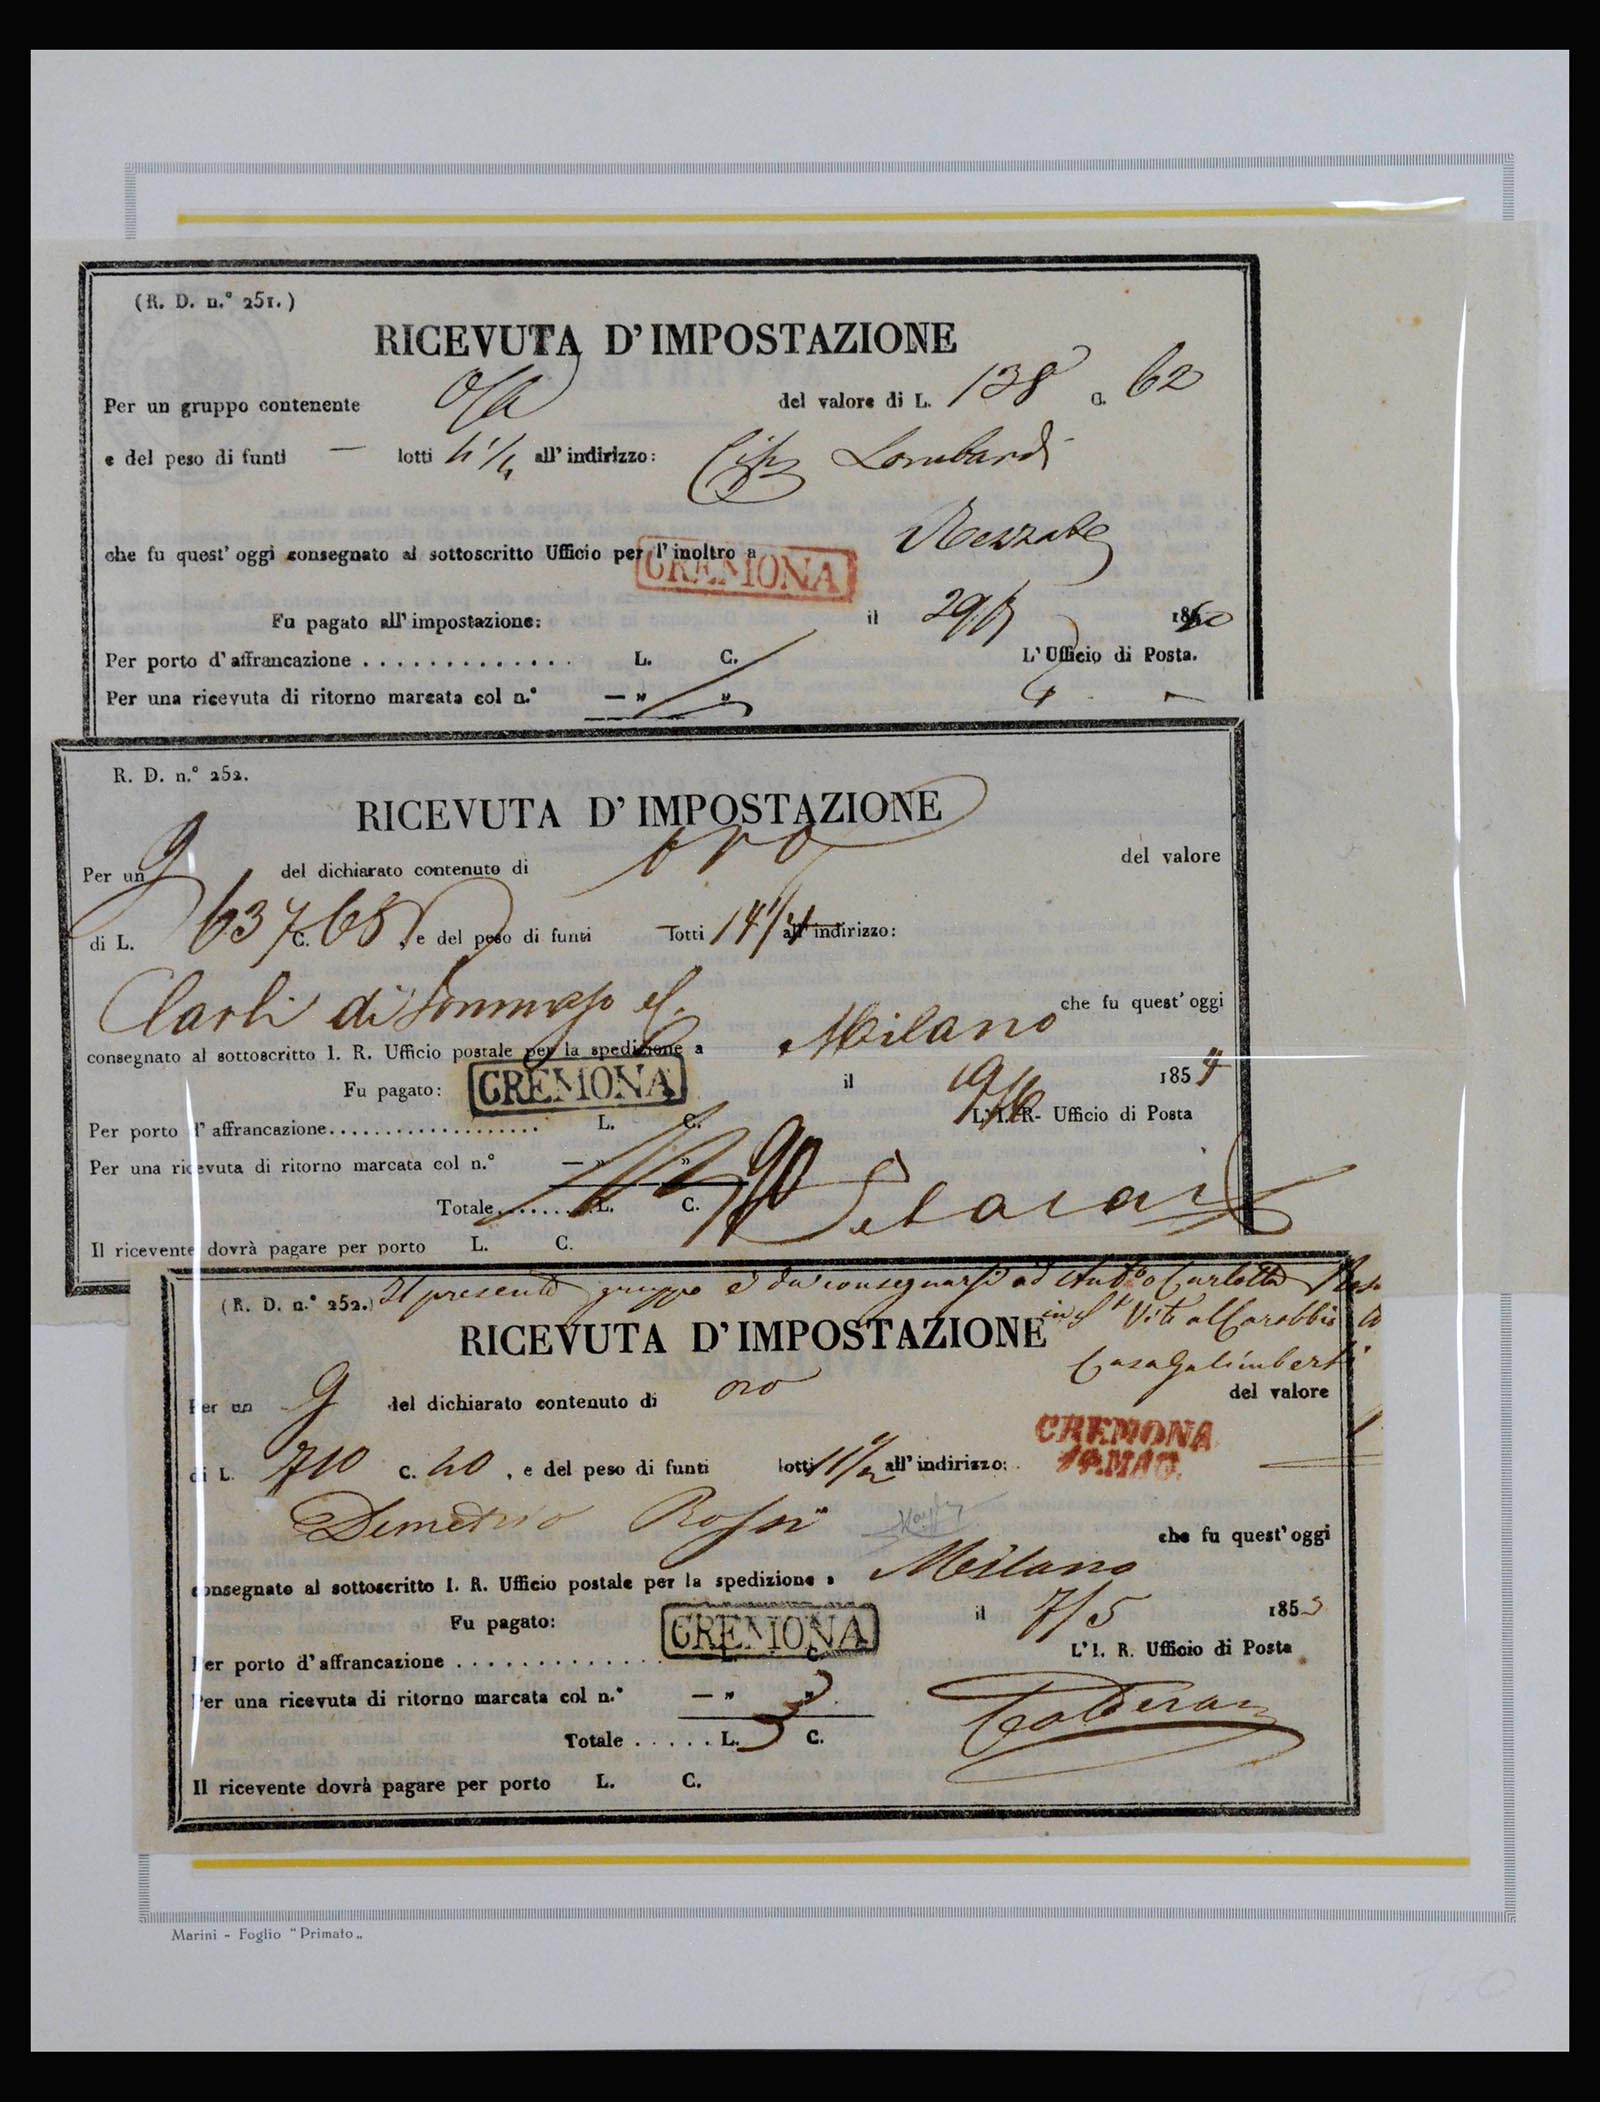 (R. D. n.° 251.)
RICEVUTA D'IMPOSTAZIONE
Per un gruppo contenente del valore di L. 138 C. 62
e del peso di funti — lotti 4 1/4 all'indirizzo: Lombardi
che fu quest'oggi consegnato al sottoscritto Ufficio per l'inoltro a
CREMONA
Fu pagato all'impostazione: il 1860
Per porto d'affrancazione . . . . . . . . . . . . . L. C. L'Ufficio di Posta.
Per una ricevuta di ritorno marcata col n.° — " "
R. D. n.° 252.
RICEVUTA D'IMPOSTAZIONE
Per un g del dichiarato contenuto di oro del valore
di L. 637 C. 68 , e del peso di funti Totti 14 1/4 all'indirizzo:
Carli di Tommaso e C. che fu quest'oggi
consegnato al sottoscritto I. R. Ufficio postale per la spedizione a Milano
Fu pagato: CREMONA il 19/6 1854
Per porto d'affrancazione................... L. C. L'I. R- Ufficio di Posta
Per una ricevuta di ritorno marcata col n.° — " "
Totale........L. C.
Il ricevente dovrà pagare per porto L. C.
Il presente gruppo è da consegnarsi ad
(R. D. n.° 252.)
in Vito al Carobbio
RICEVUTA D'IMPOSTAZIONE
Casa Galimberti
Per un g del dichiarato contenuto di oro del valore
CREMONA
14.MAG.
di L. 710 C. 40 , e del peso di funti lotti 11 1/2 all'indirizzo:
Demetrio Rossi che fu quest'oggi
consegnato al sottoscritto I. R. Ufficio postale per la spedizione a Milano
Fu pagato: CREMONA il 7/5 1853
Per porto d'affrancazione . . . . . . . . . . . . . L. C. L'I. R. Ufficio di Posta
Per una ricevuta di ritorno marcata col n.° — " "
Totale . . . . . L. 3 C.
Il ricevente dovrà pagare per porto L. C.
Marini - Foglio "Primato„